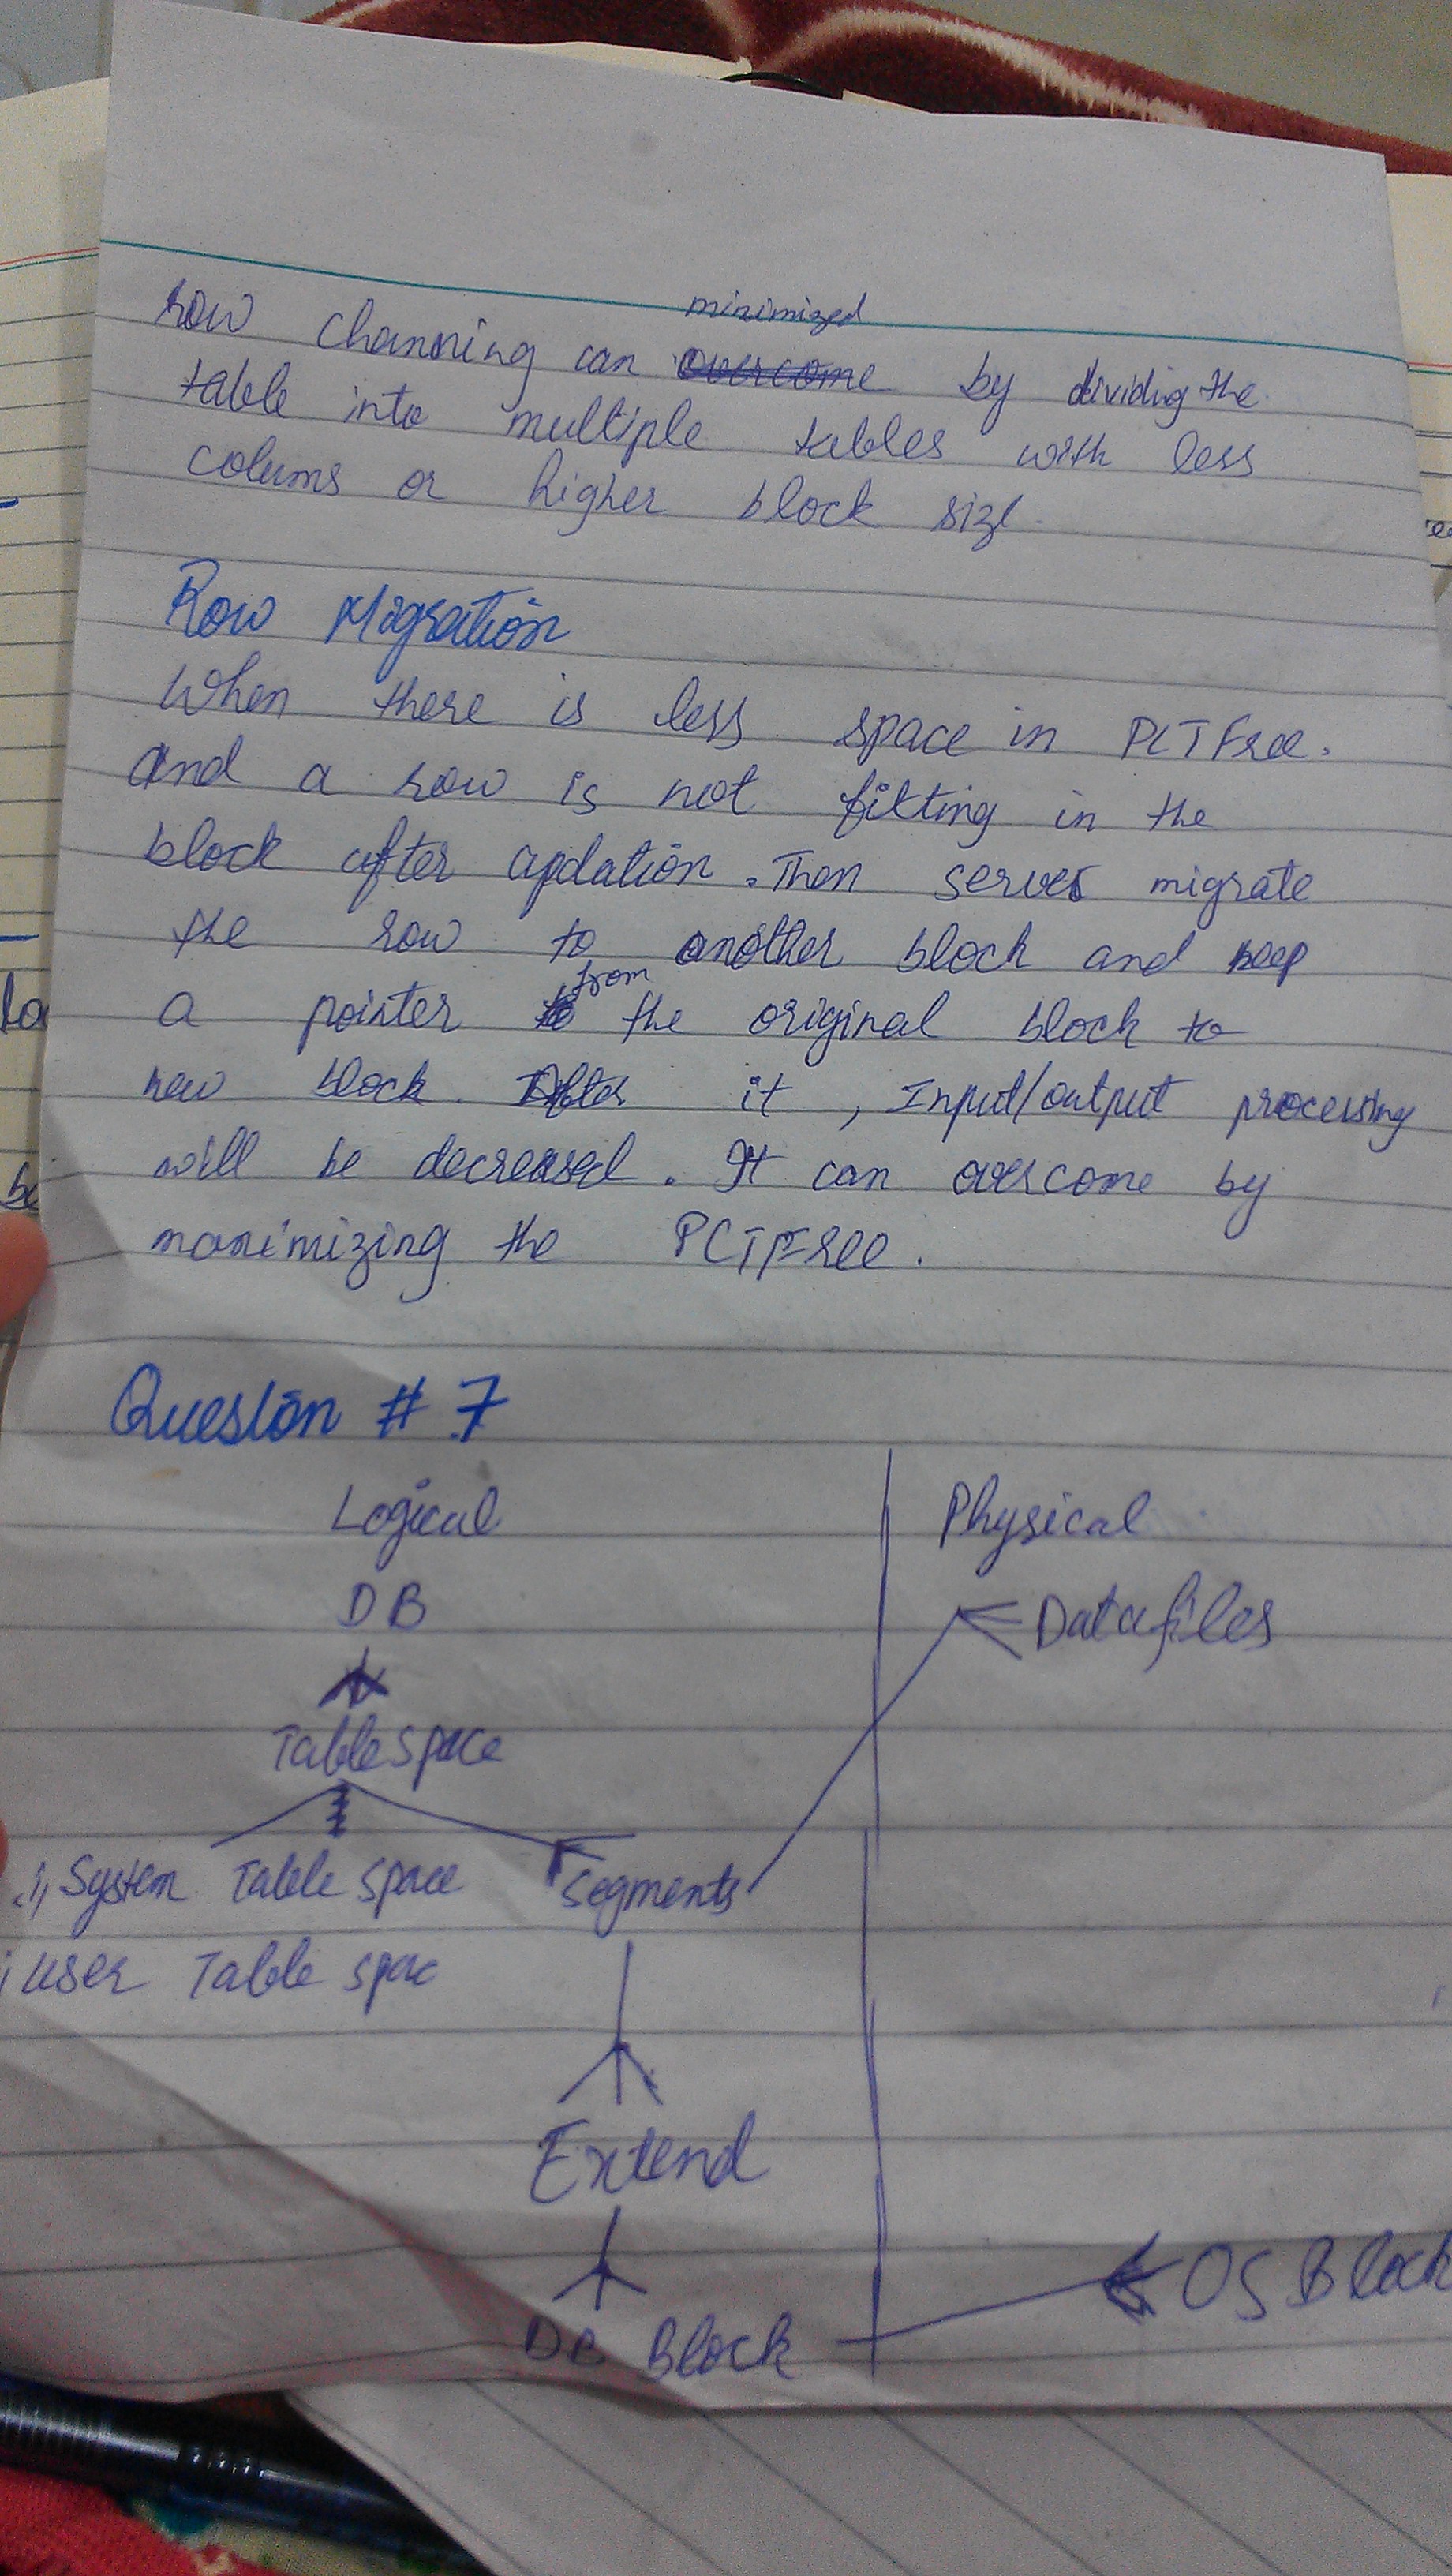 minimized
Row channing can overcome by dividing the
table into multiple tables with less
colums or higher block size.
Row Migration
When there is less space in PCTFree.
and a row is not fitting in the
block after updation. Then server migrate
the row to another block and keep
from
a pointer to the original block to
new block. After it, Input/output processing
will be decreased. It can overcome by
maximizing the PCTFree.
Question # 7
Logical
Physical
DB
Datafiles
Table space
System Table space
Segments
User Table spac
Extend
OS Block
DB Block